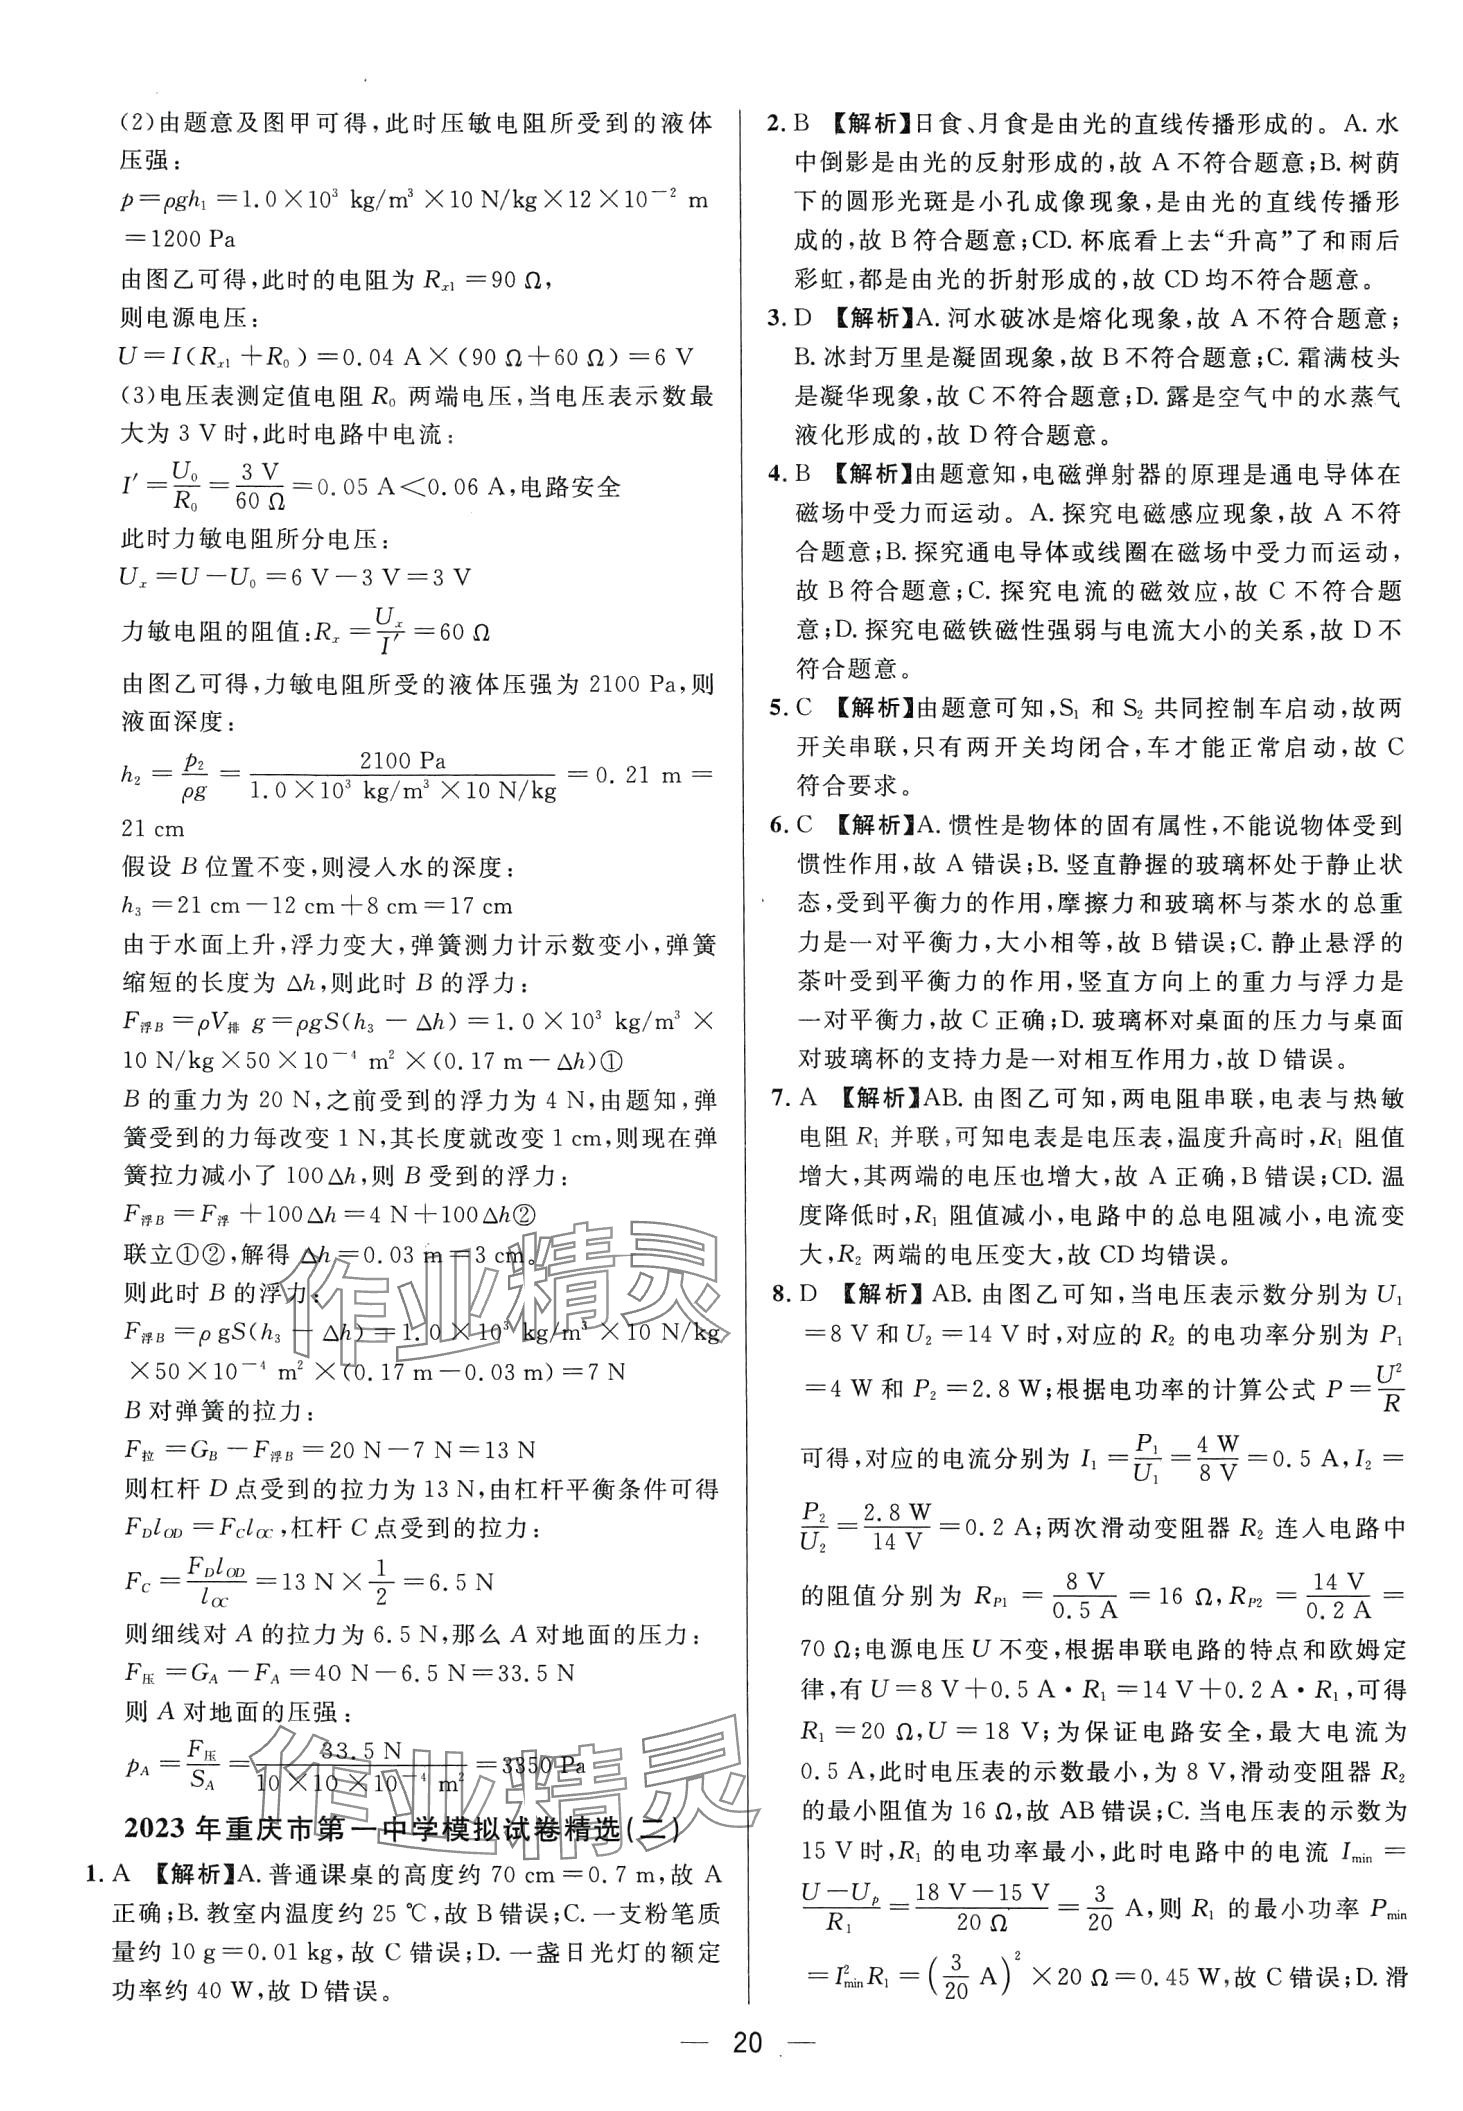 (2)由题意及图甲可得,此时压敏电阻所受到的液体
压强:
p=ρgh₁=1.0×10³ kg/m³×10 N/kg×12×10⁻² m
=1200 Pa
由图乙可得,此时的电阻为 Rx1=90 Ω,
则电源电压:
U=I(Rx1+R₀)=0.04 A×(90 Ω+60 Ω)=6 V
(3)电压表测定值电阻 R₀ 两端电压,当电压表示数最
大为 3 V时,此时电路中电流:
I′=U₀/R₀=3 V/60 Ω=0.05 A<0.06 A,电路安全
此时力敏电阻所分电压:
Uₓ=U-U₀=6 V-3 V=3 V
力敏电阻的阻值:Rₓ=Uₓ/I′=60 Ω
由图乙可得,力敏电阻所受的液体压强为 2100 Pa,则
液面深度:
h₂=p₂/ρg=2100 Pa/1.0×10³ kg/m³×10 N/kg=0.21 m=
21 cm
假设 B 位置不变,则浸入水的深度:
h₃=21 cm-12 cm+8 cm=17 cm
由于水面上升,浮力变大,弹簧测力计示数变小,弹簧
缩短的长度为 Δh,则此时 B 的浮力:
F浮B=ρV排 g=ρgS(h₃-Δh)=1.0×10³ kg/m³×
10 N/kg×50×10⁻⁴ m²×(0.17 m-Δh)①
B 的重力为 20 N,之前受到的浮力为 4 N,由题知,弹
簧受到的力每改变 1 N,其长度就改变 1 cm,则现在弹
簧拉力减小了 100Δh,则 B 受到的浮力:
F浮B=F浮+100Δh=4 N+100Δh②
联立①②,解得 Δh=0.03 m=3 cm。
则此时 B 的浮力:
F浮B=ρ gS(h₃-Δh)=1.0×10³ kg/m³×10 N/kg
×50×10⁻⁴ m²×(0.17 m-0.03 m)=7 N
B 对弹簧的拉力:
F拉=GB-F浮B=20 N-7 N=13 N
则杠杆 D 点受到的拉力为 13 N,由杠杆平衡条件可得
FDlOD=FClOC,杠杆 C 点受到的拉力:
FC=FDlOD/lOC=13 N×1/2=6.5 N
则细线对 A 的拉力为 6.5 N,那么 A 对地面的压力:
F压=GA-FA=40 N-6.5 N=33.5 N
则 A 对地面的压强:
pA=F压/SA=33.5 N/10×10×10⁻⁴ m²=3350 Pa
2023 年重庆市第一中学模拟试卷精选(二)
1. A 【解析】A. 普通课桌的高度约 70 cm=0.7 m,故 A
正确;B. 教室内温度约 25 ℃,故 B错误;C. 一支粉笔质
量约 10 g=0.01 kg,故 C 错误;D. 一盏日光灯的额定
功率约 40 W,故 D 错误。
2. B 【解析】日食、月食是由光的直线传播形成的。A. 水
中倒影是由光的反射形成的,故 A 不符合题意;B. 树荫
下的圆形光斑是小孔成像现象,是由光的直线传播形
成的,故 B符合题意;CD. 杯底看上去“升高”了和雨后
彩虹,都是由光的折射形成的,故 CD均不符合题意。
3. D 【解析】A. 河水破冰是熔化现象,故 A 不符合题意;
B. 冰封万里是凝固现象,故 B不符合题意;C. 霜满枝头
是凝华现象,故 C不符合题意;D. 露是空气中的水蒸气
液化形成的,故 D符合题意。
4. B 【解析】由题意知,电磁弹射器的原理是通电导体在
磁场中受力而运动。A. 探究电磁感应现象,故 A 不符
合题意;B. 探究通电导体或线圈在磁场中受力而运动,
故 B符合题意;C. 探究电流的磁效应,故 C 不符合题
意;D. 探究电磁铁磁性强弱与电流大小的关系,故 D不
符合题意。
5. C 【解析】由题意可知,S₁ 和 S₂ 共同控制车启动,故两
开关串联,只有两开关均闭合,车才能正常启动,故 C
符合要求。
6. C 【解析】A. 惯性是物体的固有属性,不能说物体受到
惯性作用,故 A 错误;B. 竖直静握的玻璃杯处于静止状
态,受到平衡力的作用,摩擦力和玻璃杯与茶水的总重
力是一对平衡力,大小相等,故 B 错误;C. 静止悬浮的
茶叶受到平衡力的作用,竖直方向上的重力与浮力是
一对平衡力,故 C正确;D. 玻璃杯对桌面的压力与桌面
对玻璃杯的支持力是一对相互作用力,故 D错误。
7. A 【解析】AB. 由图乙可知,两电阻串联,电表与热敏
电阻 R₁ 并联,可知电表是电压表,温度升高时,R₁ 阻值
增大,其两端的电压也增大,故 A 正确,B 错误;CD. 温
度降低时,R₁ 阻值减小,电路中的总电阻减小,电流变
大,R₂ 两端的电压变大,故 CD均错误。
8. D 【解析】AB. 由图乙可知,当电压表示数分别为 U₁
=8 V 和 U₂=14 V 时,对应的 R₂ 的电功率分别为 P₁
=4 W 和 P₂=2.8 W;根据电功率的计算公式 P=U²/R
可得,对应的电流分别为 I₁=P₁/U₁=4 W/8 V=0.5 A,I₂=
P₂/U₂=2.8 W/14 V=0.2 A;两次滑动变阻器 R₂ 连入电路中
的阻值分别为 RP1=8 V/0.5 A=16 Ω,RP2=14 V/0.2 A=
70 Ω;电源电压 U 不变,根据串联电路的特点和欧姆定
律,有 U=8 V+0.5 A·R₁=14 V+0.2 A·R₁,可得
R₁=20 Ω,U=18 V;为保证电路安全,最大电流为
0.5 A,此时电压表的示数最小,为 8 V,滑动变阻器 R₂
的最小阻值为 16 Ω,故 AB错误;C. 当电压表的示数为
15 V时,R₁ 的电功率最小,此时电路中的电流 Imin=
U-Up/R₁=18 V-15 V/20 Ω=3/20 A,则 R₁ 的最小功率 Pmin
=I²minR₁=(3/20 A)²×20 Ω=0.45 W,故 C错误;D. 滑
作业精灵
作业精灵
— 20 —